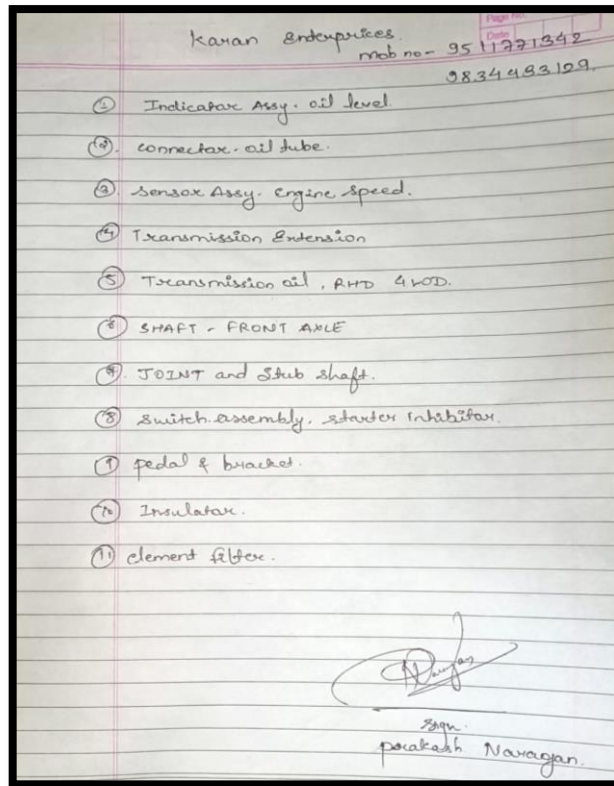 Page No.
Date
Karan Enterprices.
mob no - 9511771342
9834493129.
① Indicator Assy. oil level.
②. connector - oil tube.
③. Sensor Assy. engine speed.
④ Transmission Extension
⑤ Transmission oil, RHD 4WD.
⑥ SHAFT - FRONT AXLE
⑦. JOINT and Stub shaft.
⑧ Switch assembly. starter inhibitor.
⑨ pedal & bracket.
⑩ Insulator.
⑪ element filter.
Sign.
prakash Narayan.